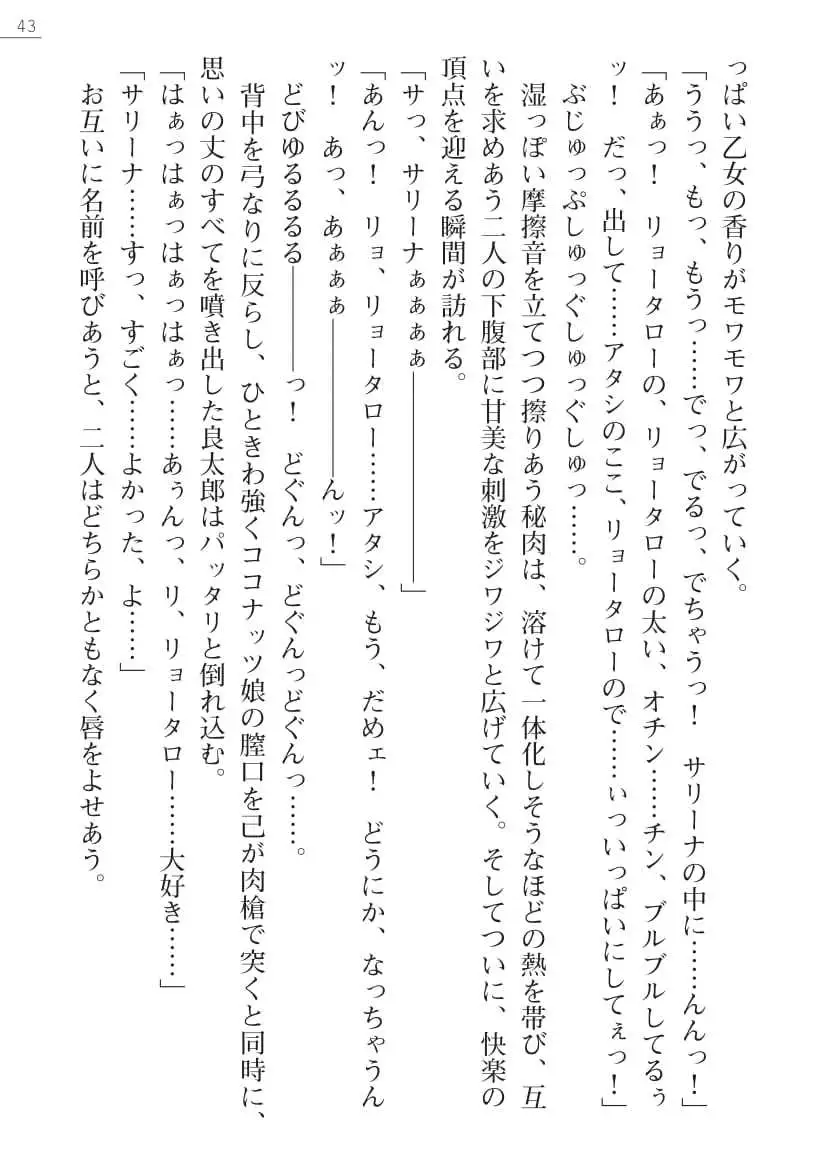 43
っぱい乙女の香りがモワモワと広がっていく。
「ううっ、もっ、もうっ……でっ、でるっ、でちゃうっ！　サリーナの中に……んんっ！」
「あぁっ！　リョータローの、リョータローの太い、オチン……チン、ブルブルしてるぅ
ッ！　だっ、出して……アタシのここ、リョータローので……ぃっいっぱいにしてぇっ！」
ぶじゅっぷしゅっぐしゅっぐしゅっ……。
湿っぽい摩擦音を立てつつ擦りあう秘肉は、溶けて一体化しそうなほどの熱を帯び、互
いを求めあう二人の下腹部に甘美な刺激をジワジワと広げていく。そしてついに、快楽の
頂点を迎える瞬間が訪れる。
「サっ、サリーナぁぁぁぁ――――――――」
「あんっ！　リョ、リョータロー……アタシ、もう、だめェ！　どうにか、なっちゃうん
ッ！　あっ、あぁぁぁ――――――んッ！」
どびゆるるるる――――っ！　どぐんっ、どぐんっどぐんっ……。
背中を弓なりに反らし、ひときわ強くココナッツ娘の膣口を己が肉槍で突くと同時に、
思いの丈のすべてを噴き出した良太郎はパッタリと倒れ込む。
「はぁっはぁっはぁっはぁっ……あぅんっ、リ、リョータロー……大好き……」
「サリーナ……すっ、すごく……よかった、よ……」
お互いに名前を呼びあうと、二人はどちらかともなく唇をよせあう。